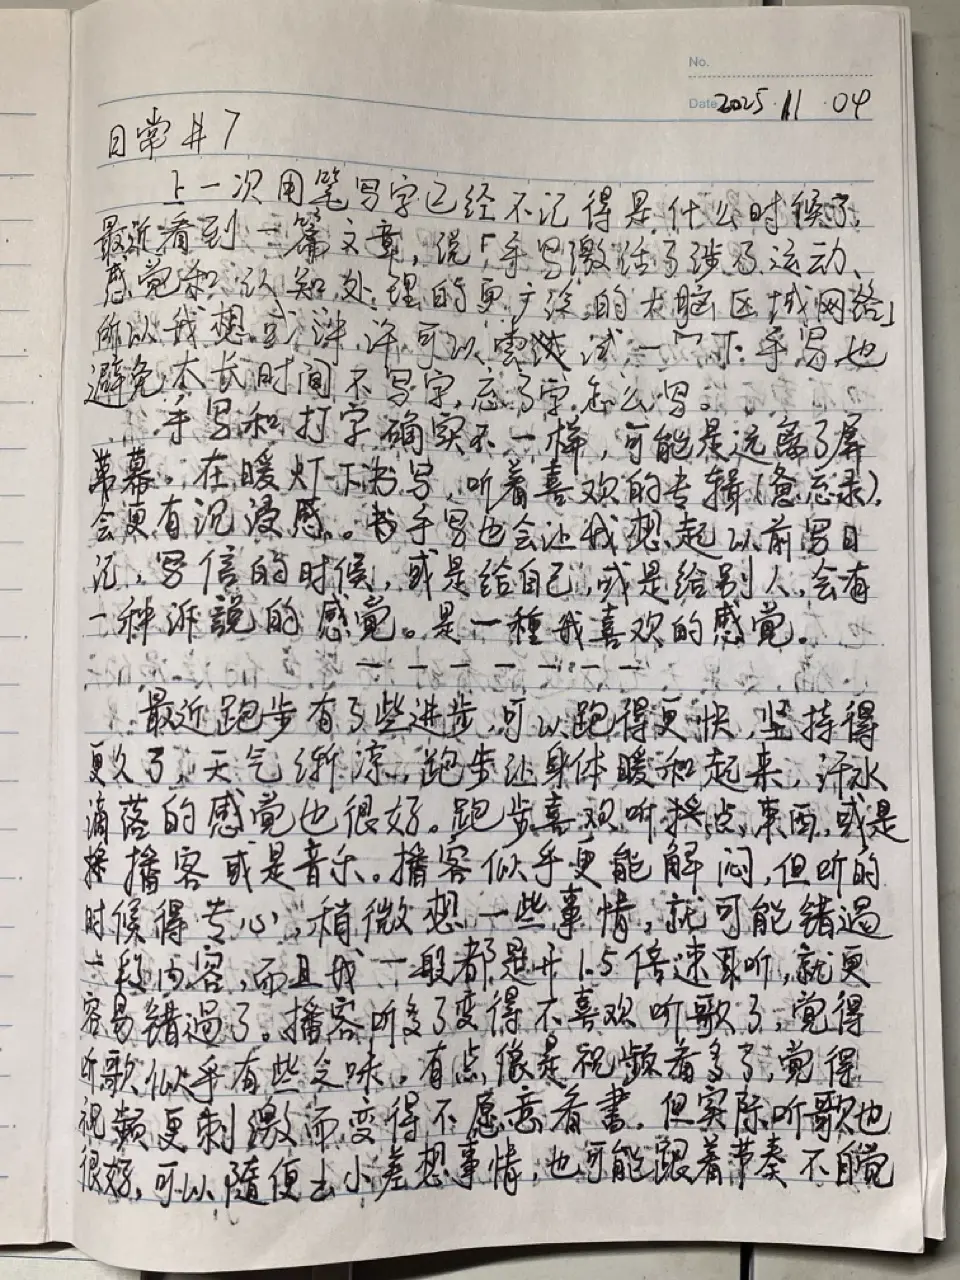 No.
Date 2025.11.04
日常 #7
上一次用笔写字已经不记得是什么时候了
最近看到一篇文章,说「手写激活了涉及运动、
感觉和认知处理的更广泛的大脑区域网络」
所以我想或许可以尝试一下手写,也
避免太长时间不写字,忘了字怎么写。
手写和打字确实不一样,可能是远离了屏
幕。在暖灯下书写,听着喜欢的专辑(意忘录)
会更有沉浸感。手写也会让我想起以前写日
记,写信的时候,或是给自己,或是给别人,会有
一种诉說的感觉。是一種我喜欢的感觉。
— — — — — — —
最近跑步有了些进步,可以跑得更快,坚持得
更久了,天气渐凉,跑步让身体暖和起来,汗水
滴落的感觉也很好。跑步喜欢听点東西,或是
播客或是音乐。播客似乎更能解闷,但听的
时候得专心,稍微想一些事情,就可能错過
一段内容,而且我一般都是开1.5倍速来听,就更
容易错過了。播客听多了变得不喜欢听歌了,觉得
听歌似乎有些乏味。有点像是视频看多了,觉得
视频更刺激而变得不愿意看書。但实际听歌也
很好,可以随便去小差想事情,也可能跟着节奏不自觉